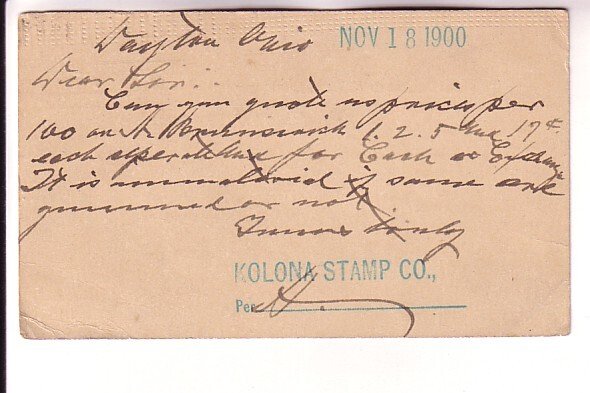 Dayton Ohio NOV 18 1900
Dear Sir..
Can you quote us prices per
100 on N. Brunswick 1. 2. 5 and 17¢
each separate for Cash or Exchange
It is immaterial if same are
gummed or not
Yours truly
KOLONA STAMP CO.,
Per H.